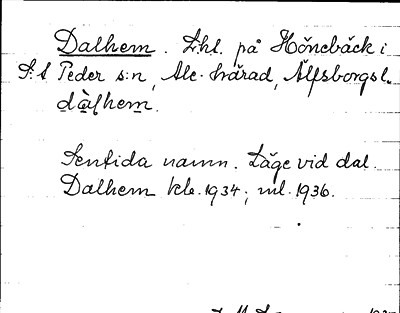 Dalhem. Lht. på Hönebäck i
S:t Peder s:n, Ale-härad, Älfsborgs l.
dàlhem.
Sentida namn. Läge vid dal.
Dalhem kle. 1934; ml. 1936.